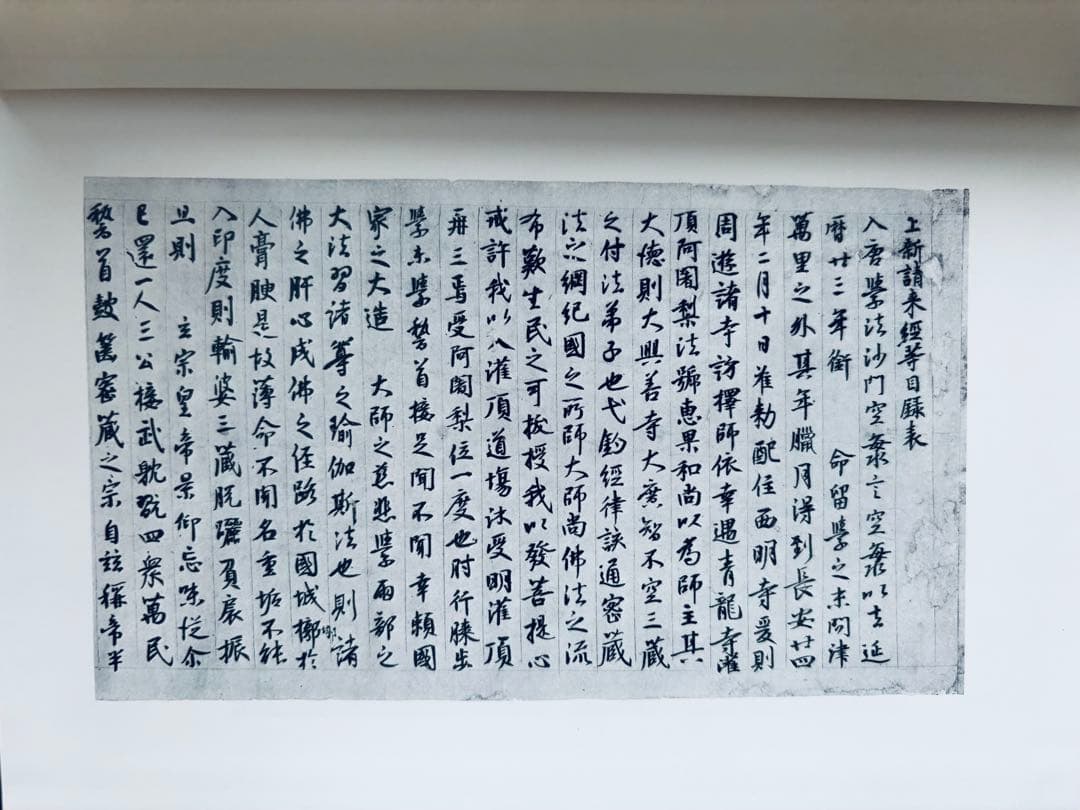 上新請来經等目録表
入唐學法沙門空海言空海以去延
曆廿三年銜 命留學之末問津
萬里之外其年臘月得到長安廿四
年二月十日准勅配住西明寺爰則
周遊諸寺訪擇師依幸遇青龍寺灌
頂阿闍梨法號惠果和尚以為師主其
大德則大興善寺大廣智不空三藏
之付法弟子也弋釣經律該通密藏
法之綱紀國之所師大師尚佛法之流
布歎生民之可拔授我以發菩提心
戒許我以入灌頂道場沐受明灌頂
再三焉受阿闍梨位一度也肘行膝步
學未學稽首接足聞不聞幸賴國
家之大造 大師之慈悲學兩部之
大法習諸尊之瑜伽斯法也則諸
佛之肝心成佛之徑路於國城墎於
人膏腴是故薄命不聞名重垢不能
入印度則輸婆三藏脫躧負扆振
旦則 玄宗皇帝景仰忘味從尒
已還一人三公接武耽翫四衆萬民
稽首鼓篋密藏之宗自茲稱帝半